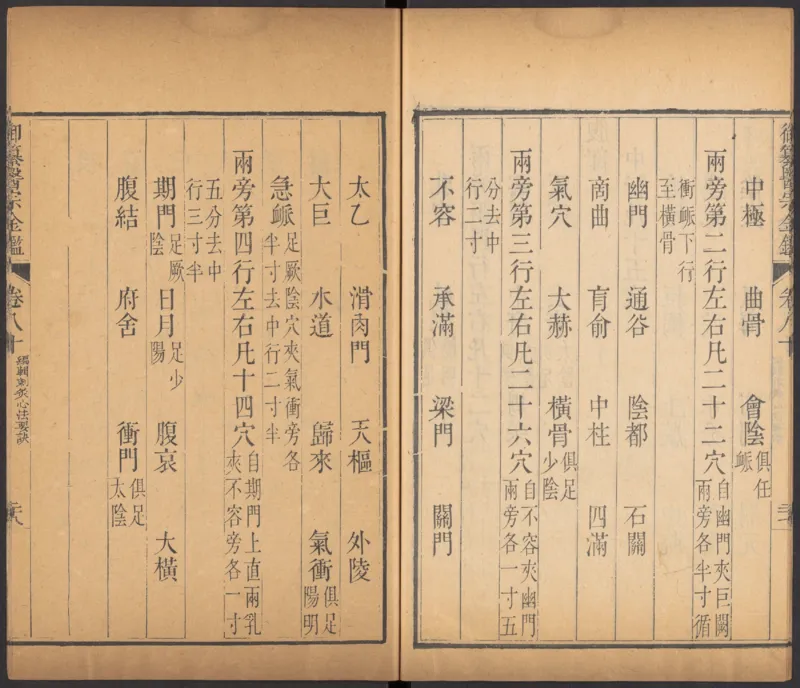 中極 曲骨 會陰俱任脈
兩旁第二行左右凡二十二穴自幽門夾巨闕兩旁各半寸循
衝脈下行至橫骨
幽門 通谷 陰都 石關
商曲 肓俞 中柱 四滿
氣穴 大赫 橫骨俱足少陰
兩旁第三行左右凡二十六穴自不容夾幽門兩旁各一寸五
分去中行二寸
不容 承滿 梁門 關門
太乙 滑肉門 天樞 外陵
大巨 水道 歸來 氣衝俱足陽明
急脈足厥陰穴夾氣衝旁各半寸去中行二寸半
兩旁第四行左右凡十四穴自期門上直兩乳夾不容旁各一寸
五分去中行三寸半
期門足厥陰 日月足少陽 腹哀 大橫
腹結 府舍 衝門俱足太陰
御纂醫宗金鑑 卷八十 編輯刺灸心法要訣
御纂醫宗金鑑 卷八十